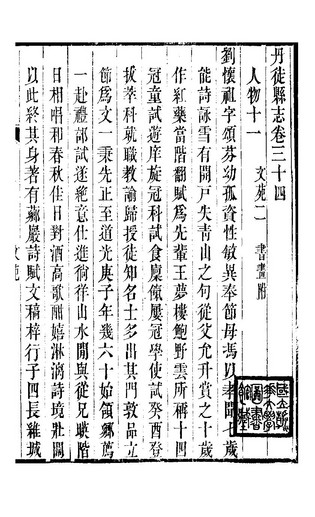 丹徒縣志卷三十四
人物十一
文苑二 書畫附
劉懷祖字頌芬幼孤資性敏異奉節母馮以孝聞七歲
能詩詠雪有開戸失青山之句從父允升賞之十歲
作紅藥當階翻賦為先輩王夢樓鮑野雲所稱十四
冠童試遊庠旋冠科試食廩餼屢冠學使試癸酉登
拔萃科就職教諭歸授徒知名士多出其門敦品立
節為文一秉先正至道光庚子年幾六十始領鄉薦
一赴禮部試遂絶意仕進徜徉山水間與從兄暎階
日相唱和春秋佳日對酒高歌酣嬉淋漓詩境壯闊
以此終其身著有蘇巖詩賦文稿梓行子四長維城
文苑